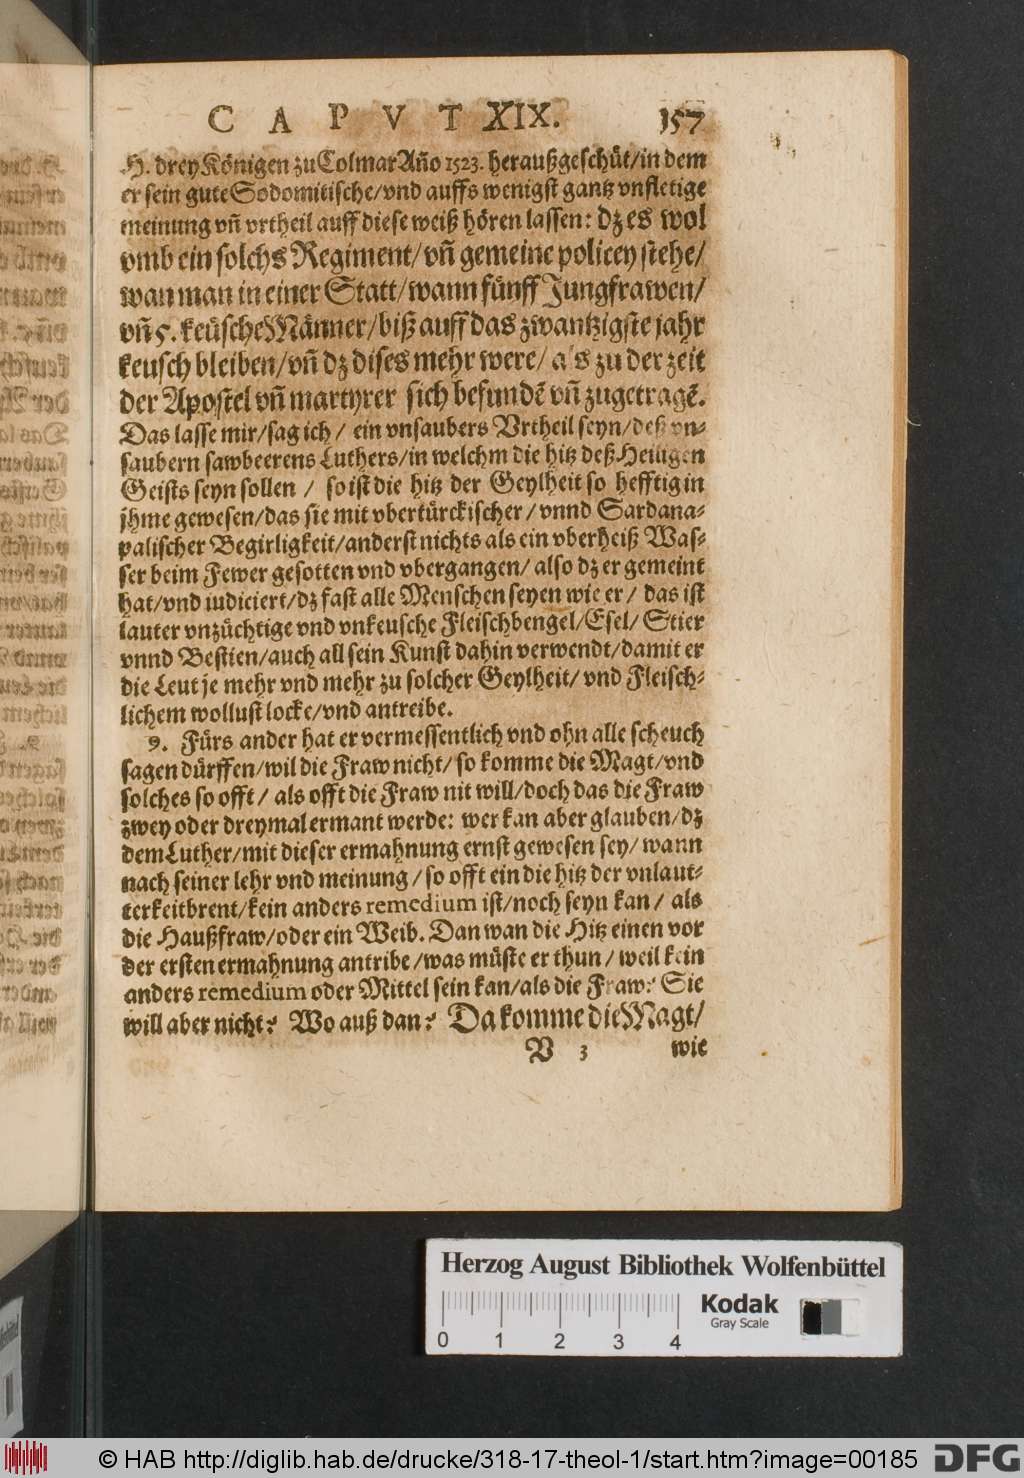 CAPVT XIX. 157
H. drey Königen zu Colmar Año 1523. heraußgeschüt/in dem
er sein gute Sodomitische/vnd auffs wenigst gantz vnfletige
meinung vñ vrtheil auff diese weiß hören lassen: dz es wol
vmb ein solchs Regiment/vñ gemeine policey stehe/
wan man in einer Statt/wann fünff Jungfrawen/
vñ 5. keüsche Männer/biß auff das zwantzigste jahr
keusch bleiben/vñ dz dises mehr were/ als zu der zeit
der Apostel vñ martyrer sich befundẽ vñ zugetragẽ.
Das lasse mir/sag ich/ ein vnsaubers Vrtheil seyn/deß vn-
saubern sawbeerens Luthers/in welchm die hitz deß Heiligen
Geists seyn sollen / so ist die hitz der Geylheit so hefftig in
jhme gewesen/das sie mit vbertürckischer/ vnnd Sardana-
palischer Begirligkeit/anderst nichts als ein vberheiß Was-
ser beim Fewer gesotten vnd vbergangen/ also dz er gemeint
hat/vnd iudiciert/dz fast alle Menschen seyen wie er/ das ist
lauter vnzüchtige vnd vnkeusche Fleischbengel/Esel/ Stier
vnnd Bestien/auch all sein Kunst dahin verwendt/damit er
die Leut je mehr vnd mehr zu solcher Geylheit/ vnd Fleisch-
lichem wollust locke/vnd antreibe.
9. Fürs ander hat er vermessentlich vnd ohn alle scheuch
sagen dürffen/wil die Fraw nicht/ so komme die Magt/vnd
solches so offt/ als offt die Fraw nit will/doch das die Fraw
zwey oder dreymal ermant werde: wer kan aber glauben/dz
dem Luther/mit dieser ermahnung ernst gewesen sey/ wann
nach seiner lehr vnd meinung/so offt ein die hitz der vnlaut-
terkeit brent/kein anders remedium ist/noch seyn kan/ als
die Haußfraw/oder ein Weib. Dan wan die Hitz einen vor
der ersten ermahnung antribe/was müste er thun/ weil kein
anders remedium oder Mittel sein kan/als die Fraw? Sie
will aber nicht? Wo auß dan? Da komme die Magt/
V 3 wie
Herzog August Bibliothek Wolfenbüttel
Kodak
Gray Scale
0 1 2 3 4
© HAB http://diglib.hab.de/drucke/318-17-theol-1/start.htm?image=00185 DFG